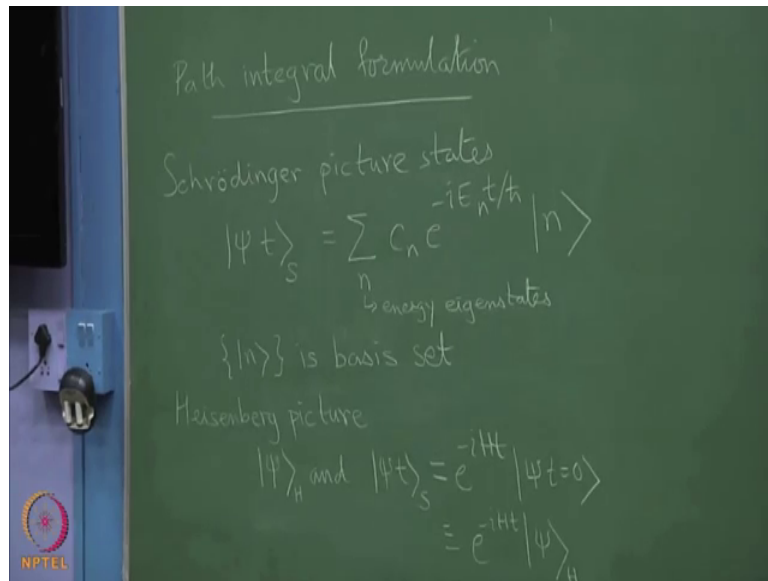 Path integral formulation
Schrödinger picture states
|Ψ t⟩_S = ∑_n c_n e^{-iE_n t/ħ} |n⟩
↳ energy eigenstates
{|n⟩} is basis set
Heisenberg picture
|Ψ⟩_H and |Ψt⟩_S = e^{-iHt} |Ψ t=0⟩
≡ e^{-iHt} |Ψ⟩_H
NPTEL